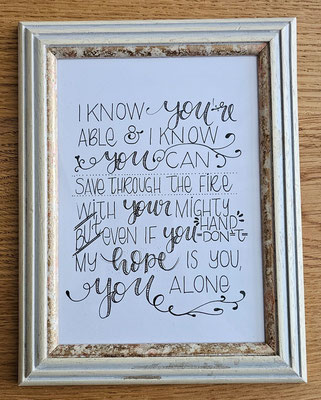 I KNOW you're
ABLE & I KNOW
you CAN
SAVE THROUGH THE FIRE
WITH your MIGHTY HAND
BUT EVEN IF you DON'T
MY hope IS YOU,
you ALONE